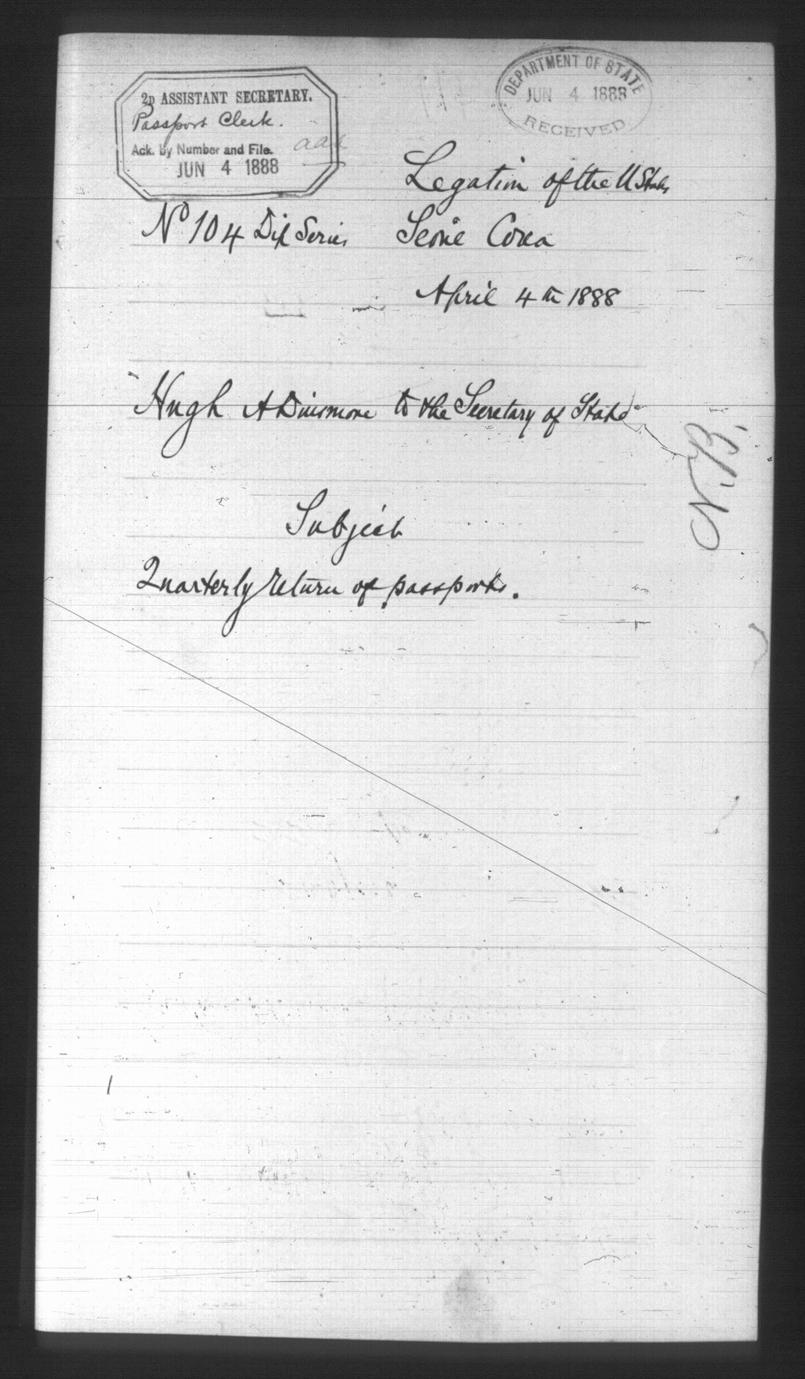 2D ASSISTANT SECRETARY.
Passport Clerk.
Ack. By Number and File.
JUN 4 1888
DEPARTMENT OF STATE
JUN 4 1888
RECEIVED
Legation of the U States
No 104 Dip Series
Seoul Corea
April 4th 1888
Hugh A Dinsmore to the Secretary of State
N.B.
Subject
Quarterly return of passports.